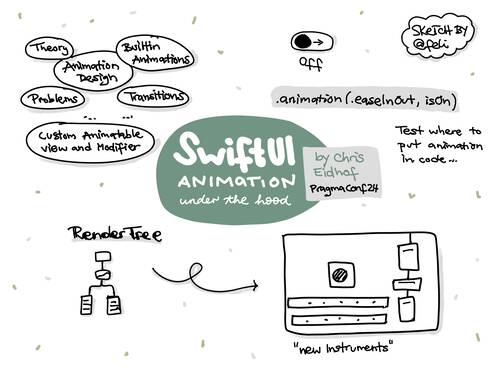 Theory
Builtin
Animations
Animation
Design
Problems
Transitions
Custom Animatable
View and Modifier
off
SKETCH BY
@feli
.animation(.easeInOut, isOn)
Test where to
put animation
in code...
SwiftUI
ANIMATION
under the hood
by Chris
Eidhof
PragmaConf24
RenderTree
"new Instruments"